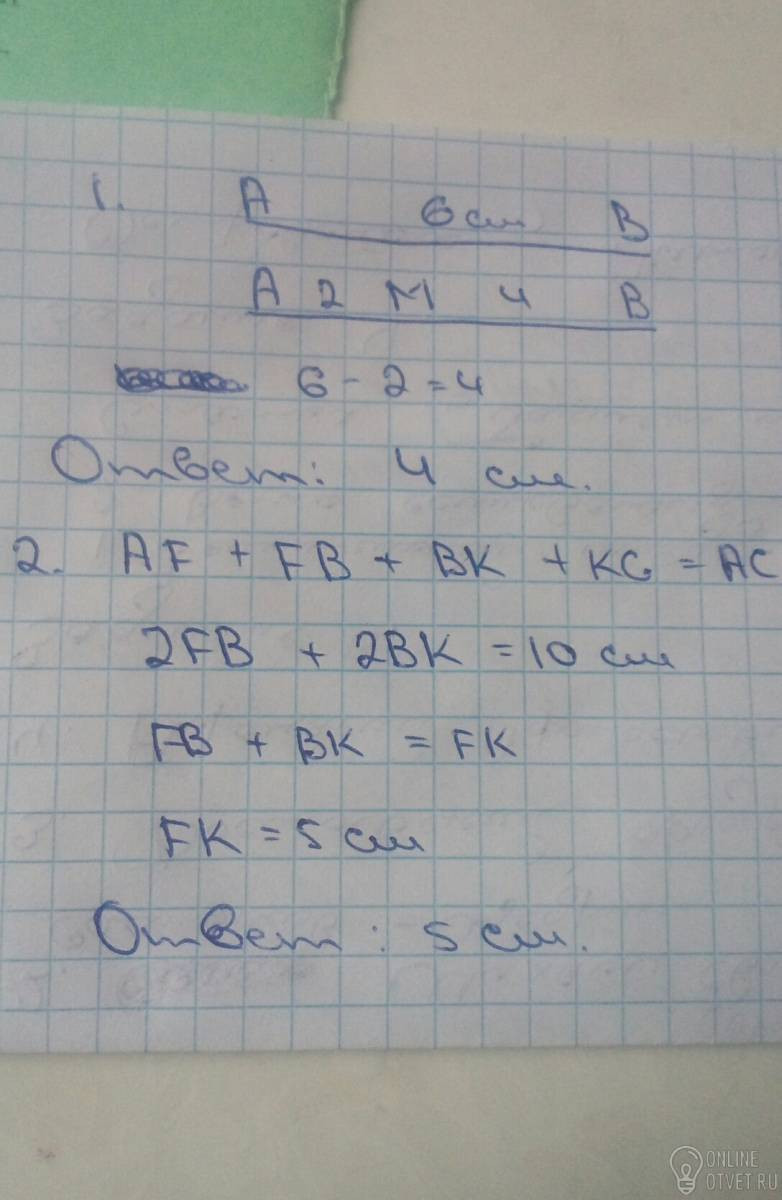 1. А 6 см В
А 2 М 4 В
6 - 2 = 4
Ответ: 4 см.
2. AF + FB + BK + KC = AC
2FB + 2BK = 10 см
FB + BK = FK
FK = 5 см
Ответ: 5 см.
ONLINE
OTVET.RU